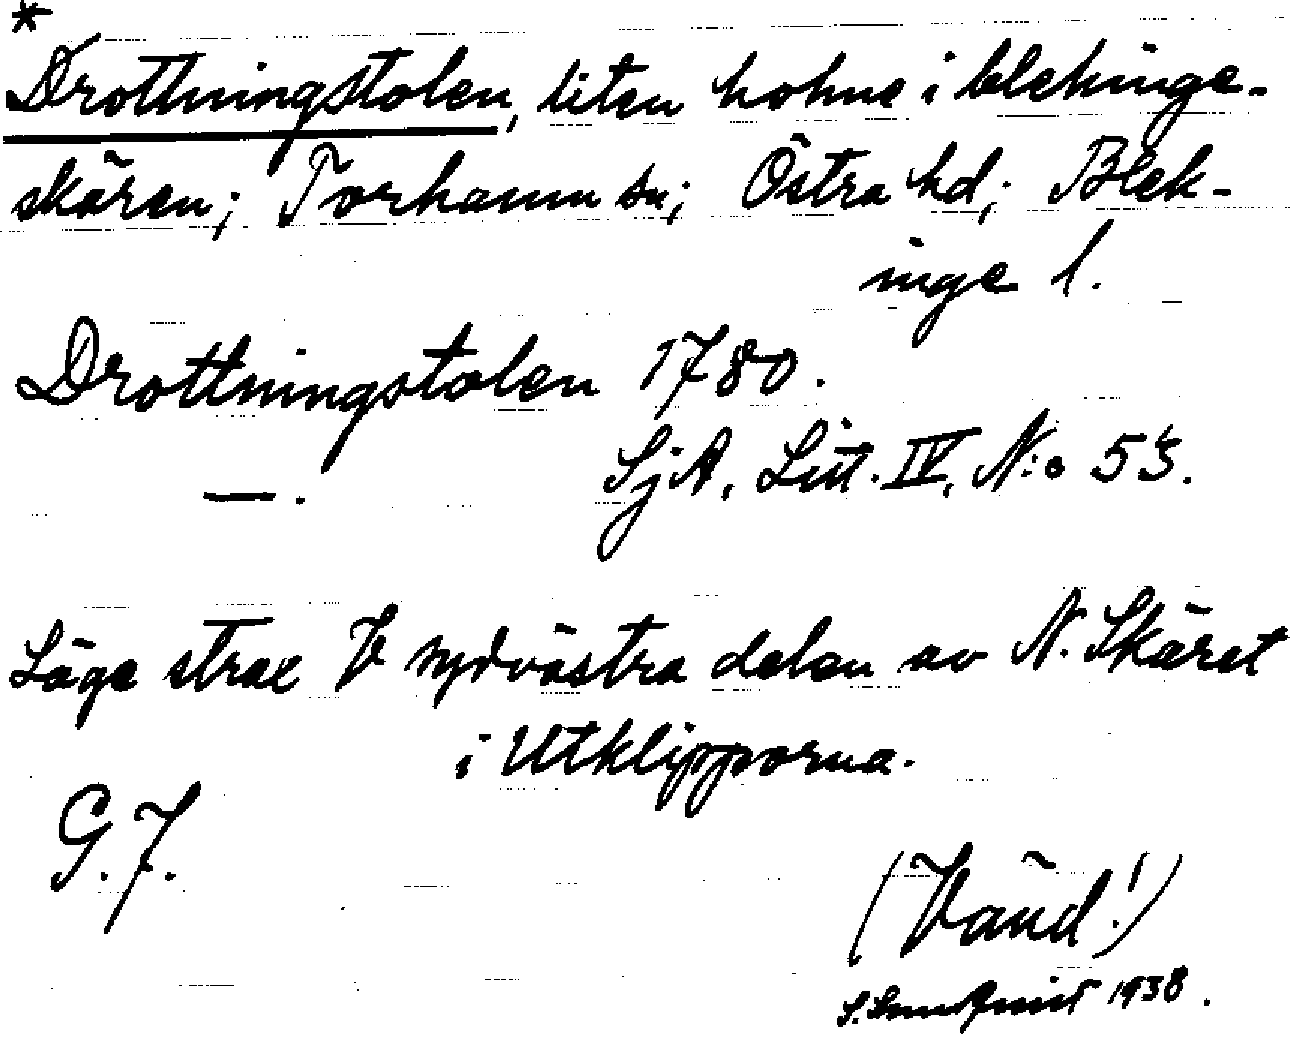 *
Drottningstolen, liten holme i blekinge-
skären; Torhamn sn; Östra hd; Blek-
inge l.
Drottningstolen 1780.
— . SjA, Litt. IV, N:o 53.
Läge strax V sydvästra delen av N. Skäret
i Utklipporna.
G. F.
(Vänd!)
1938.